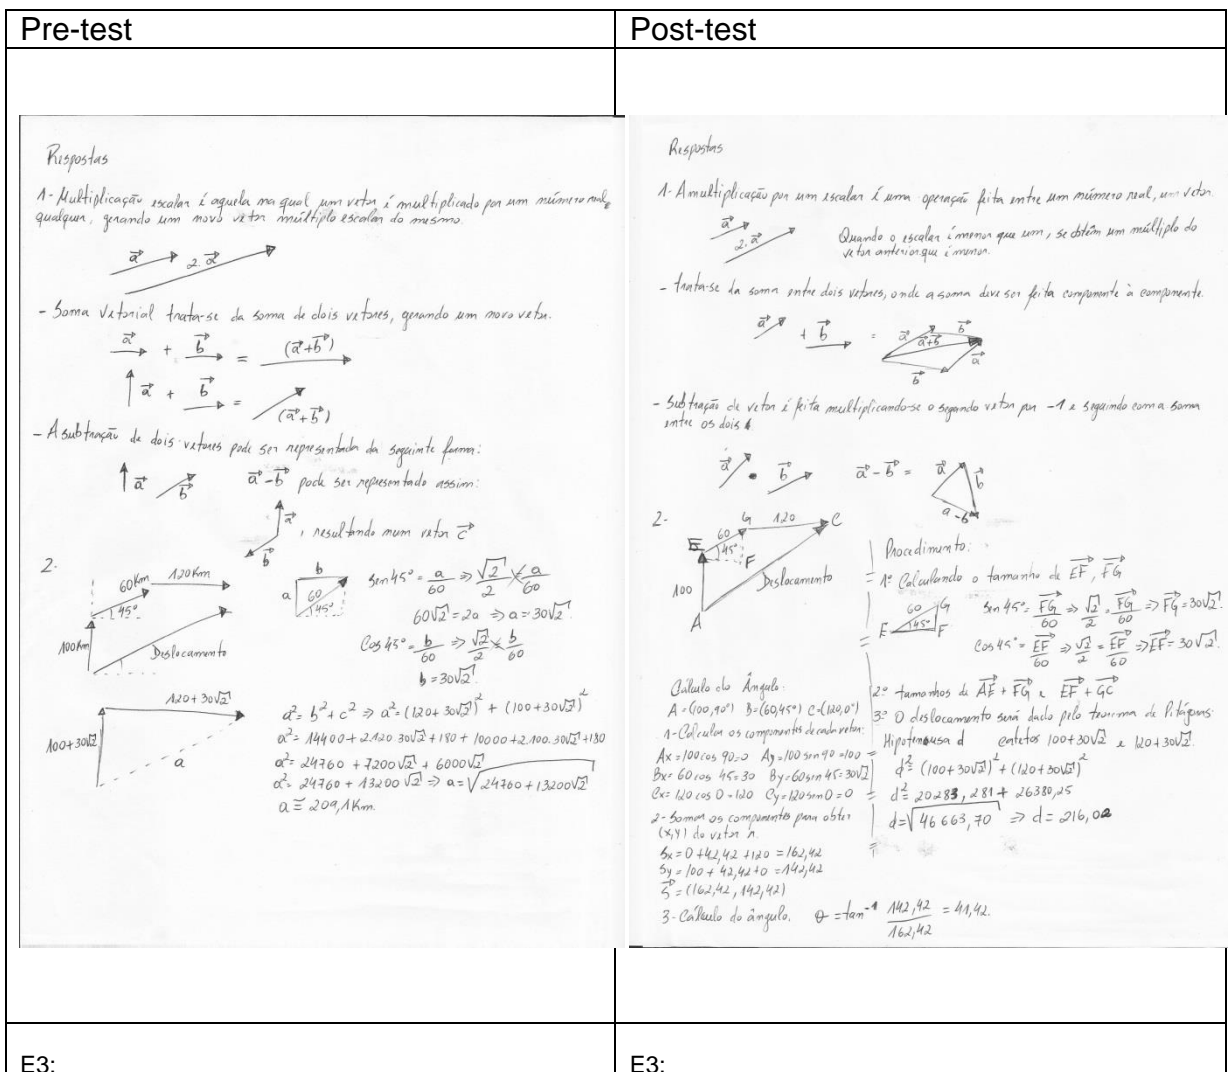 Pre-test
Post-test
Respostas
1- Multiplicação escalar é aquela na qual um vetor é multiplicado por um número real,
qualquer, gerando um novo vetor múltiplo escalar do mesmo.
a⃗ 2.a⃗
- Soma Vetorial trata-se da soma de dois vetores, gerando um novo vetor.
a⃗ + b⃗ = (a⃗+b⃗)
a⃗ + b⃗ = (a⃗+b⃗)
- A subtração de dois vetores pode ser representada da seguinte forma:
a⃗ b⃗ a⃗-b⃗ pode ser representado assim:
a⃗
b⃗ , resultando num vetor c⃗
2.
60Km 120Km
45°
100Km Deslocamento
b
a 60 45°
Sen45° = a/60 ⇒ √2/2 = a/60
60√2 = 2a ⇒ a = 30√2
Cos45° = b/60 ⇒ √2/2 = b/60
b = 30√2
120+30√2
100+30√2
a
a² = b² + c² ⇒ a² = (120+30√2)² + (100+30√2)²
a² = 14400 + 2.120.30√2 + 180 + 10000 + 2.100.30√2 + 180
a² = 24760 + 7200√2 + 6000√2
a² = 24760 + 13200√2 ⇒ a = √24760 + 13200√2
a ≅ 209,1Km.
Respostas
1- A multiplicação por um escalar é uma operação feita entre um número real, um vetor.
a⃗
2.a⃗
Quando o escalar é menor que um, se obtém um múltiplo do
vetor anterior que é menor.
- trata-se da soma entre dois vetores, onde a soma deve ser feita componente à componente.
a⃗ + b⃗ = a⃗ b⃗ a⃗+b⃗ b⃗ a⃗
- Subtração de vetor é feita multiplicando-se o segundo vetor por -1 e seguindo com a soma
entre os dois
a⃗ • b⃗ a⃗-b⃗ = a⃗ b⃗ a-b
2-
G 120 C
E 60 45° F
100 Deslocamento
A
Procedimento:
1º Calculando o tamanho de EF⃗, FG⃗
60 G
E 45° F
Sen45° = FG⃗/60 ⇒ √2/2 = FG⃗/60 ⇒ FG⃗ = 30√2.
Cos45° = EF⃗/60 ⇒ √2/2 = EF⃗/60 ⇒ EF⃗ = 30√2.
2º tamanhos de AE⃗ + FG⃗ e EF⃗ + GC⃗
3º O deslocamento será dado pelo teorema de Pitágoras.
Hipotenusa d catetos 100+30√2 e 120+30√2.
d² = (100+30√2)² + (120+30√2)²
d² = 20283,281 + 26380,25
d = √46 663,70 ⇒ d = 216,02
Cálculo do Ângulo:
A = (100,90°) B = (60,45°) C = (120,0°)
1-Calcular os componentes de cada vetor:
Ax = 100 cos 90 = 0 Ay = 100 sen 90 = 100
Bx = 60 cos 45 = 30 By = 60 sen 45 = 30√2
Cx = 120 cos 0 = 120 Cy = 120 sen 0 = 0
2- Somar os componentes para obter
(x,y) do vetor
Sx = 0 + 42,42 + 120 = 162,42
Sy = 100 + 42,42 + 0 = 142,42
S⃗ = (162,42, 142,42)
3-Cálculo do ângulo. θ = tan⁻¹ 142,42/162,42 = 41,42.
E3:
E3: